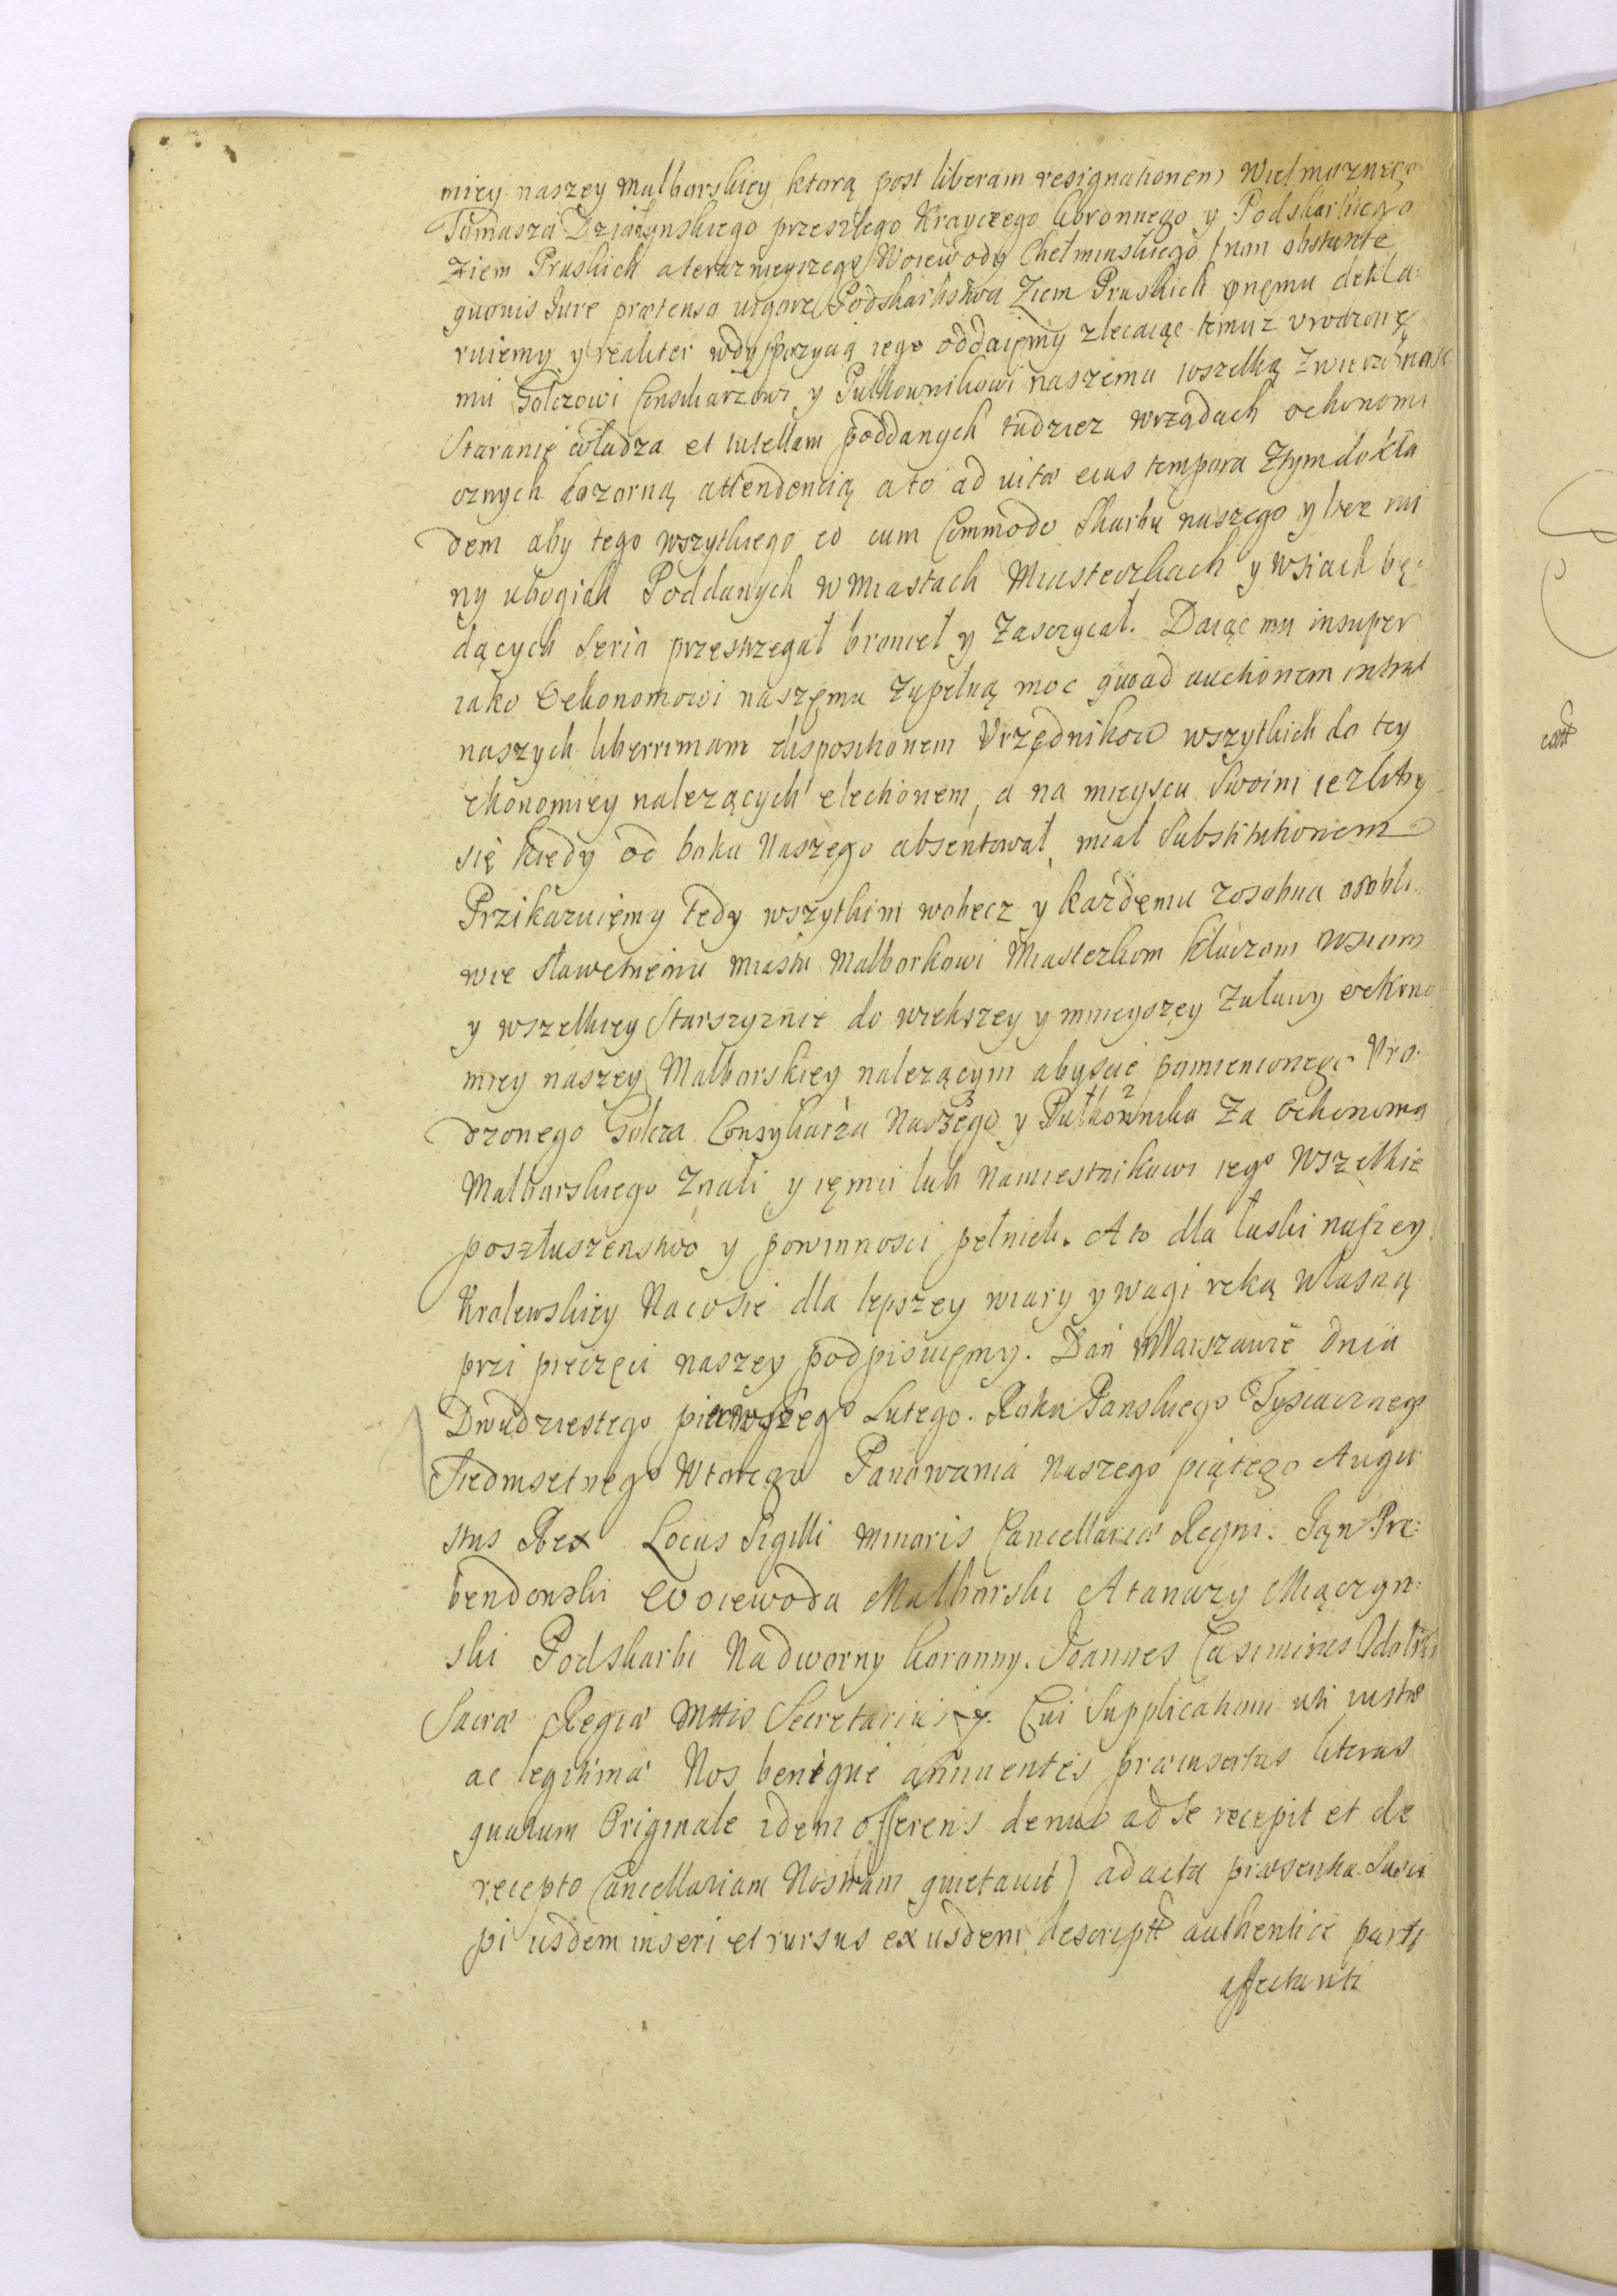 miey naszey Malborskiey, ktorą post liberam resignationem Wielmoznego
Tomasza Działynskiego przeszłego Krayczego Koronnego y Podskarbiego
Ziem Pruskich a teraznieyszego Woiewody Chełminskiego (non obstante
quovis Jure prætenso vigore Podskarbstwa Ziem Pruskich onęmu dekla:
ruięmy y realiter w dyspozycyą iego oddaięmy zlecaiąc temuz Vrodzonę
mu Golczowi Consiliarzowi y Pułkownikowi naszęmu wszelką zwierzchnosc
Staranię władza et tutellam poddanych tudziez w rządach oekonomi
cznych dozorną attendencią a to ad vitæ eius tempora z tym dokła
dem aby tego wszytkiego co cum Commodo Skarbu naszego y bez rui
ny ubogich Poddanych w Miastach Miasteczkach y wsiach bę:
dących Serio przestrzegał bronieł y Zasczycał. Daiąc mu insuper
iako Oekonomowi naszęmu zupełną moc quoad auctionem intrat
naszych liberrimam dispositionem Vrzędnikow wszytkich do tey
ekonomiey nalezących electionem, a na mieyscu Swoim iezliby
się kiedy od boku Naszego absentował, miał Substitutionem
Przikazuięmy tedy wszytkim wobecz y kazdęmu zosobna osobli.
wie Sławetnemu miastu Malborkowi Miasteczkom kluczom wsiom
y wszelkiey Starszyznie do wiekszey y mnieyszey Zuławy oekono
miey naszey Malborskiey nalezącym abyscie pomienionego Vro.
dzonego Golcza Consyliarza Naszego y Pułkownika Za Oekonoma
Malborskiego Znali y ięmu lub Namiestnikowi iego Wszelkie
poszłuszenstwo y powinnosci pełnieli. A to dla łaski naszey
Krolewskiey Na co się dla lepszey wiary y wagi reką własną
przi pieczęci naszey podpisuięmy. Dan w Warszawie Dnia
Dwudziestego pierwszego Lutego. Roku Panskiego Tysiacznego
Siedmsetnego Wtorego Panowania Naszego piątego Augu
stus Rex Locus Sigilli minoris Cancellariæ Regni. Jąn Prę:
bendowski Woiewoda Malborski Atanazy Miączyn:
ski Podskarbi Nadworny Koronny. Joannes Casimirus
Sacræ Regiæ Mttis Secretarius Cui Supplicationi uti iustæ
ac legitimæ Nos benigne annuentes præinsertas literas
quarum Originale idem offerens denuo ad Se recepit et de
recepto Cancellariam Nostram quietavit) ad acta præsentia Susci
pi iisdem inseri et rursus ex iisdem descriptt authentice parti
affectanti